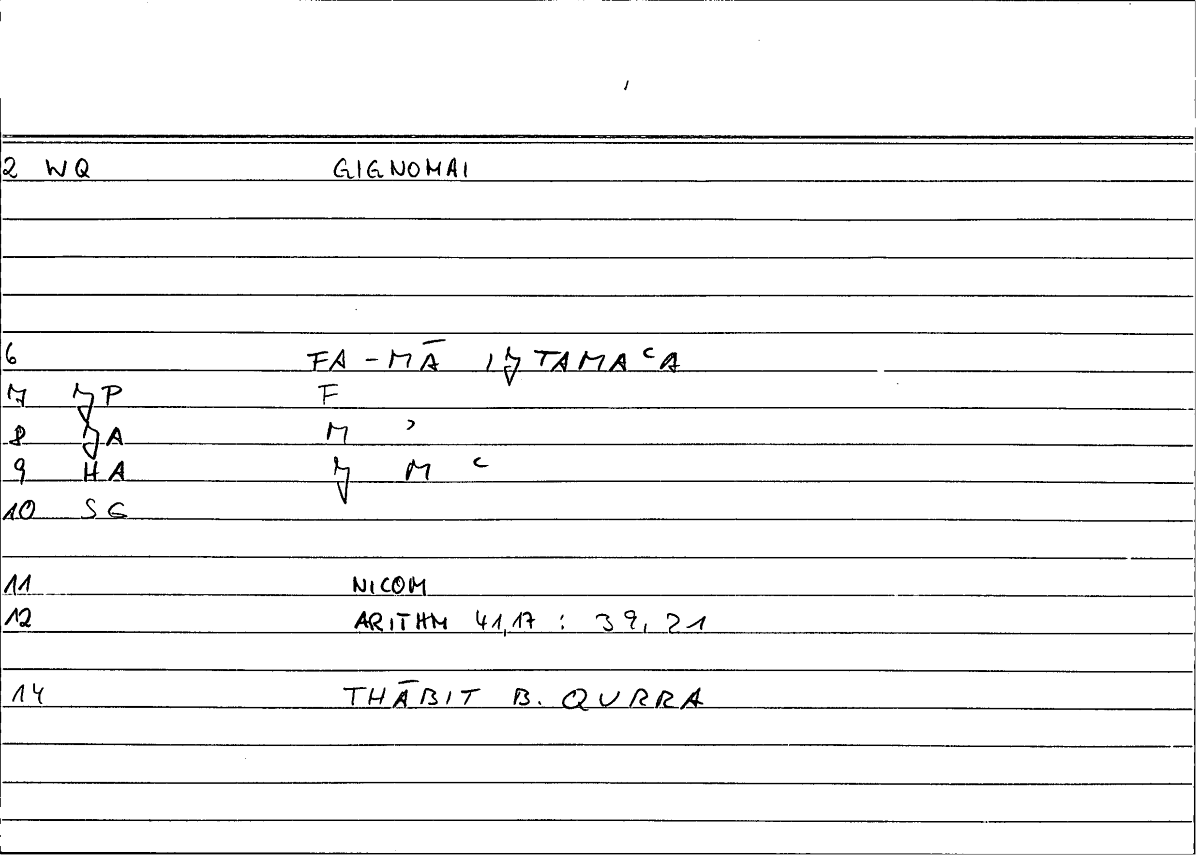 2 WQ GIGNOMAI
6 FA-MĀ IǦTAMAʿA
7 ǦP F
8 ǦA M ʾ
9 HA Ǧ M ʿ
10 SG
11 NICOM
12 ARITHM 41,17 : 39,21
14 THĀBIT B. QURRA